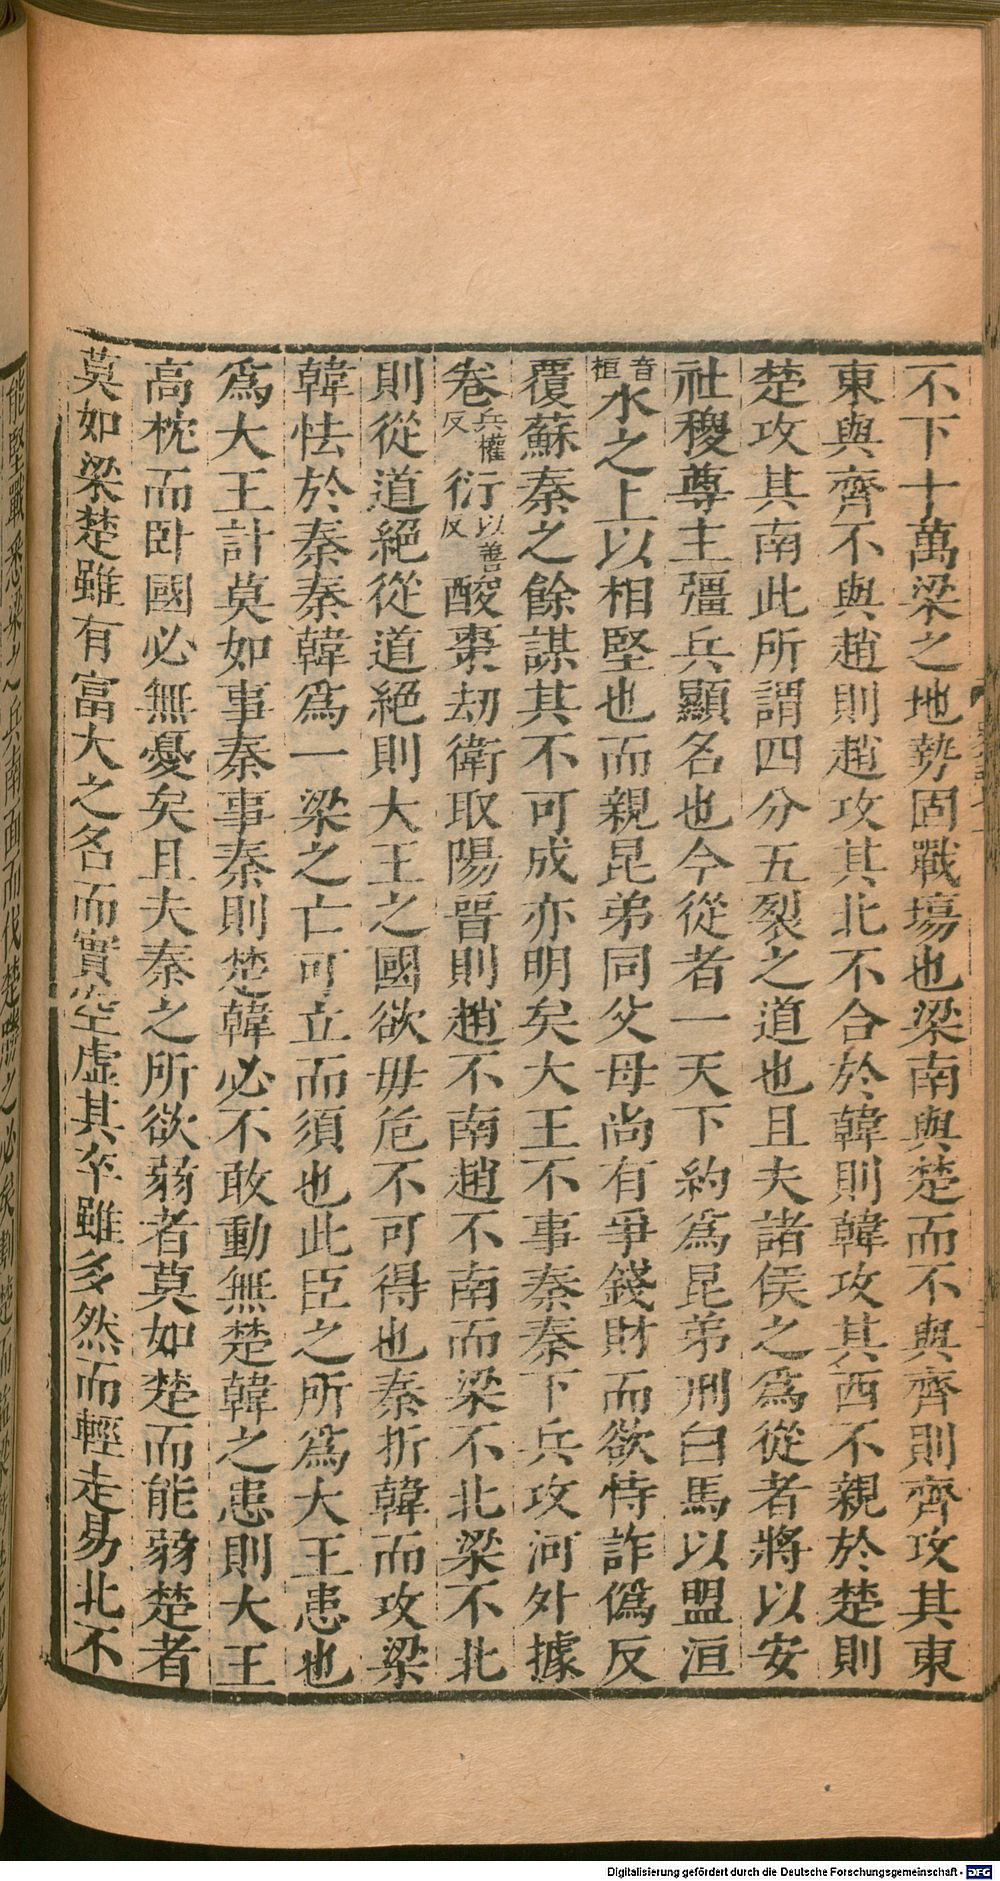 不下十萬梁之地勢固戰塲也梁南與楚而不與齊則齊攻其東
東與齊不與趙則趙攻其北不合於韓則韓攻其西不親於楚則
楚攻其南此所謂四分五裂之道也且夫諸侯之爲從者將以安
社稷尊主彊兵顯名也今從者一天下約爲昆弟刑白馬以盟洹
音桓水之上以相堅也而親昆弟同父母尚有爭錢財而欲恃詐僞反
覆蘇秦之餘謀其不可成亦明矣大王不事秦秦下兵攻河外據
卷兵權反衍以善反酸棗劫衛取陽晉則趙不南趙不南而梁不北梁不北
則從道絕從道絕則大王之國欲毋危不可得也秦折韓而攻梁
韓怯於秦秦韓爲一梁之亡可立而須也此臣之所爲大王患也
爲大王計莫如事秦事秦則楚韓必不敢動無楚韓之患則大王
高枕而卧國必無憂矣且夫秦之所欲弱者莫如楚而能弱楚者
莫如梁楚雖有富大之名而實空虛其卒雖多然而輕走易北不
能堅戰悉梁之兵南面而伐楚勝之必矣割楚而益梁
Digitalisierung gefördert durch die Deutsche Forschungsgemeinschaft - DFG